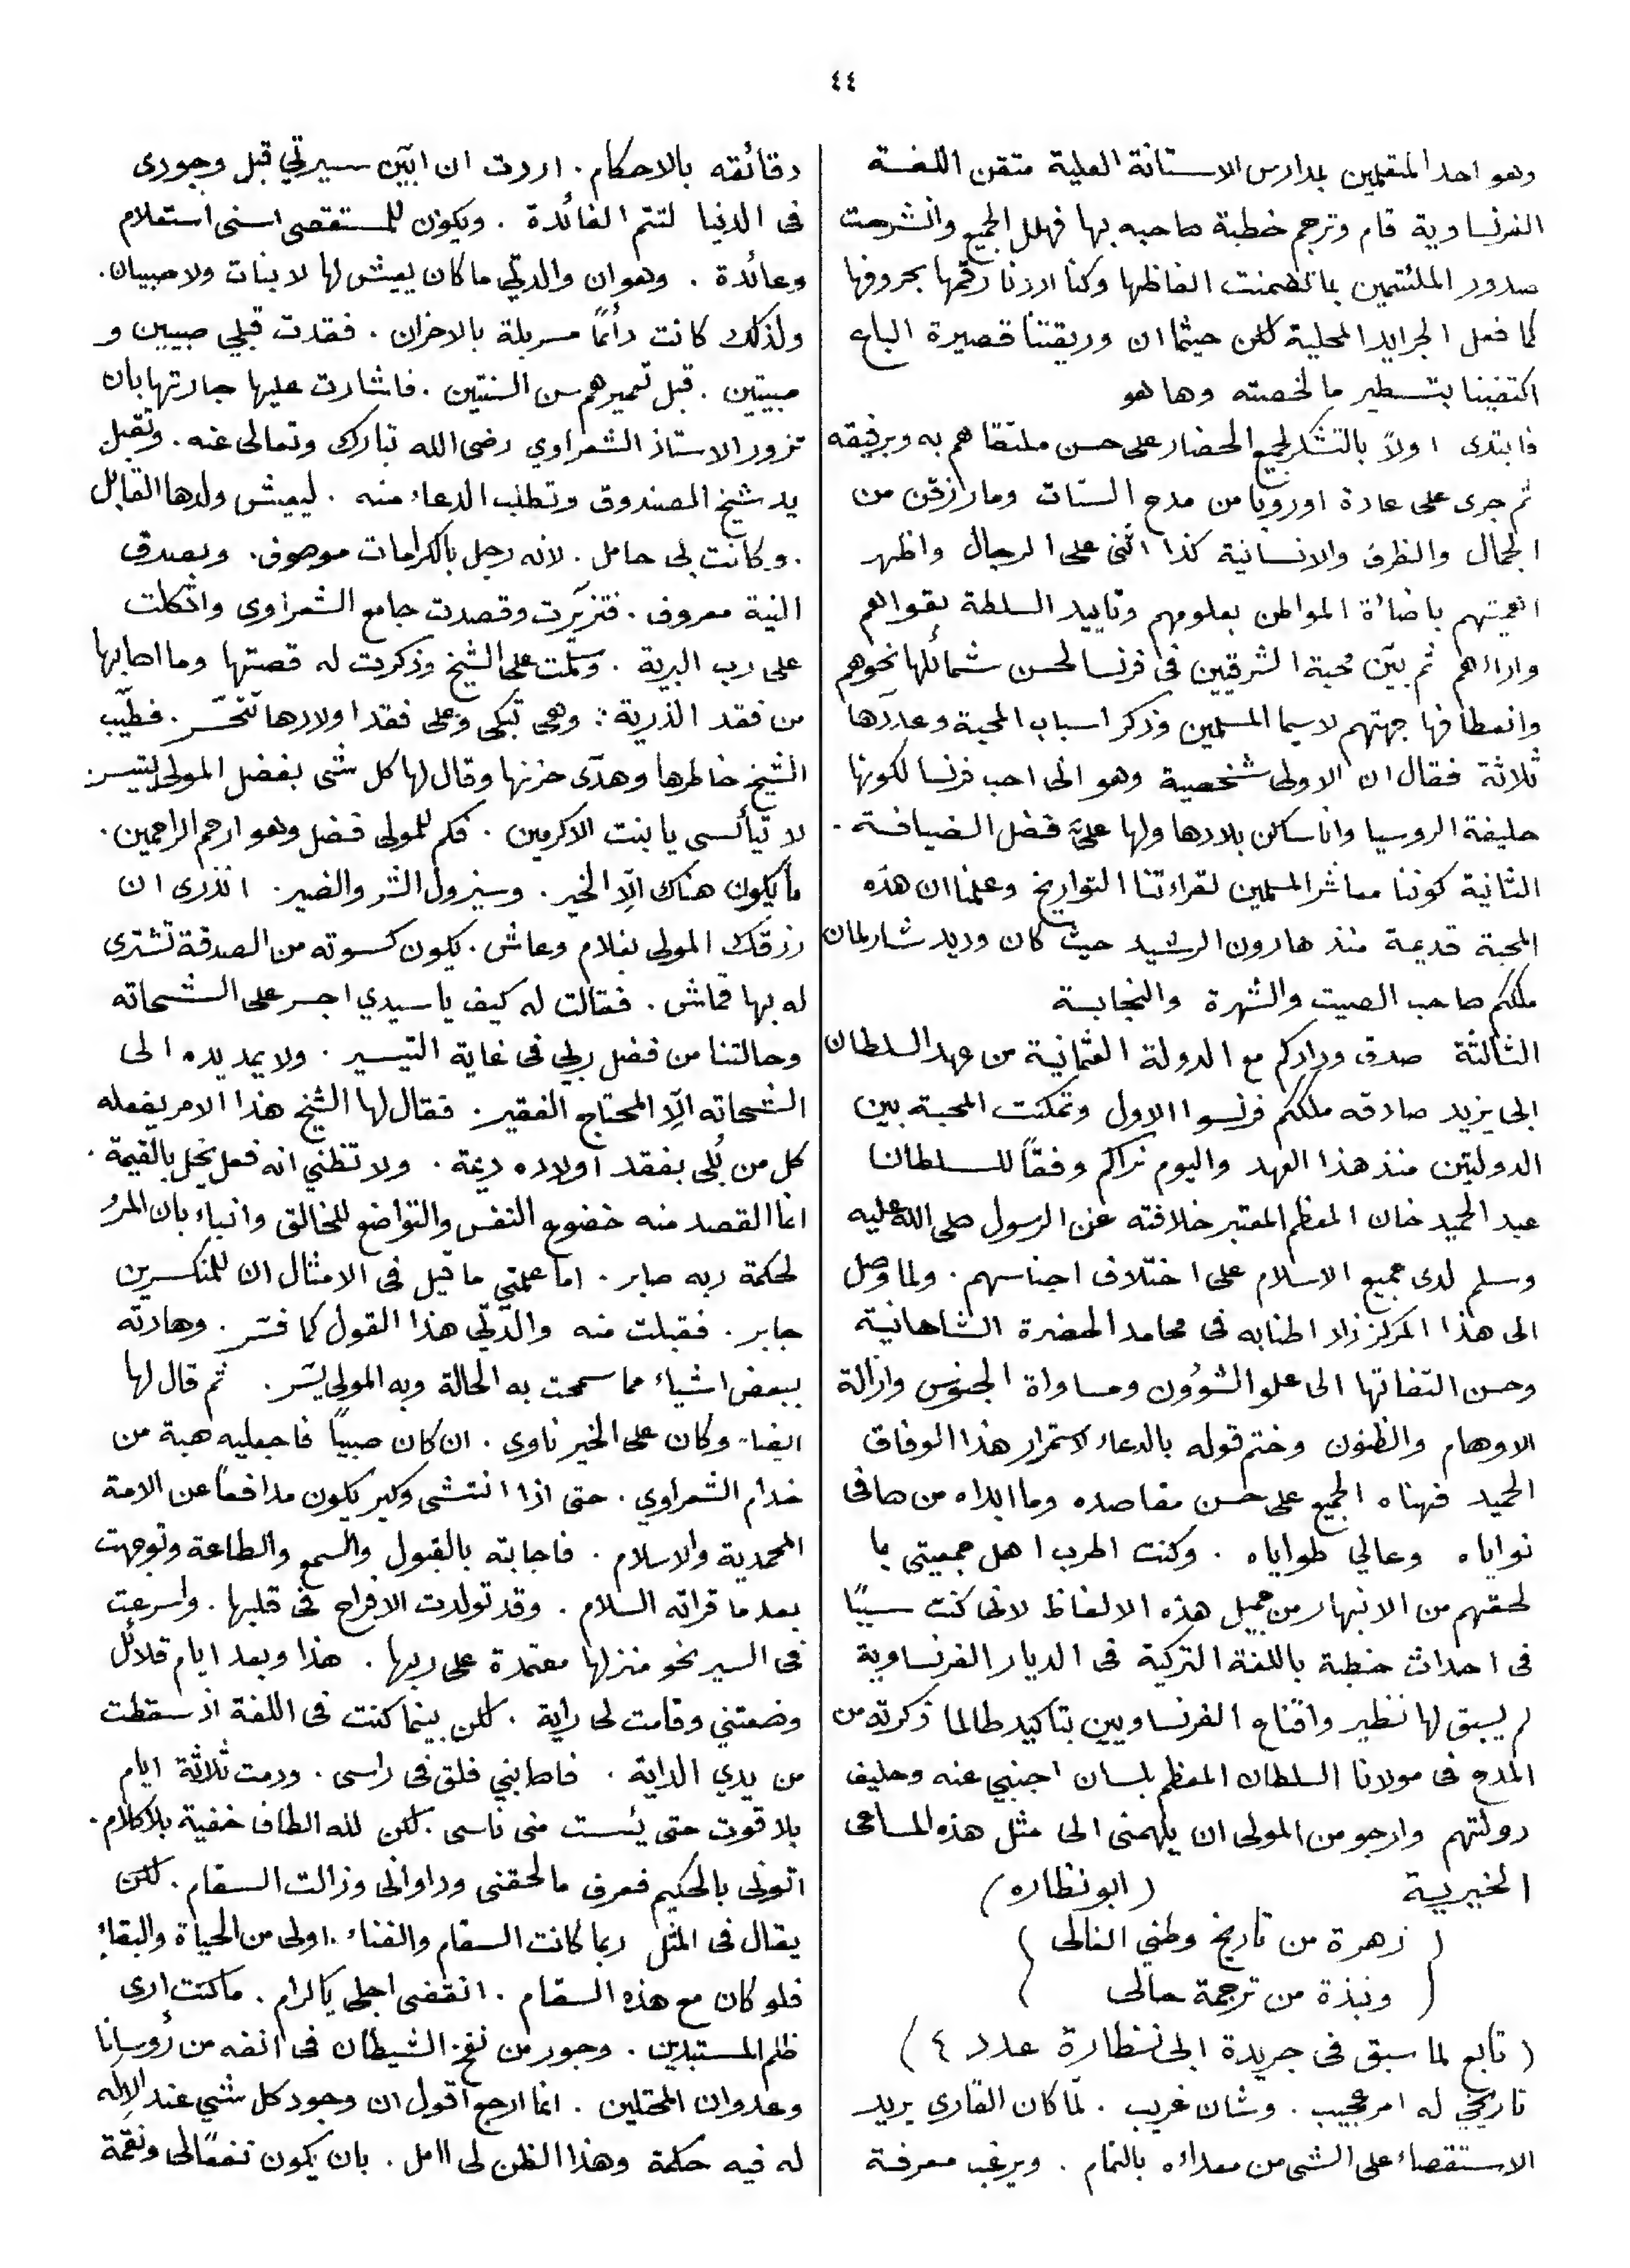 ٤٤
وهو احد المتعلمين بمدارس الاستانة العلية متقن اللغة
الفرنساوية قام وترجم خطبة صاحبه بها فهلل الجميع وانشرحت
صدور الملتئمين بما تضمنت الفاظها وكنا اردنا رقمها بحروفها
كما فعل الجرايد المحلية لكن حيثما ان وريقتنا قصيرة الباع
اكتفينا بتسطير ما لخصته وها هو
فابتدى اولاً بالتشكر لجميع الحضار على حسن ملتقاهم به وبرفيقه
ثم جرى على عادة اوروبا من مدح الستات وما رزقن من
الجمال والظرف والانسانية كذا اثنى على الرجال واظهر
اهميتهم باضائة المواطن بعلومهم وتاييد السلطة بقواهم
واراءهم ثم بيّن محبة الشرقيين فى فرنسا لحسن شمائلها نحوهم
وانعطافها جهتهم لاسيما المسلمين وذكر اسباب المحبة وعدّدها
ثلاثة فقال ان الاولى شخصية وهو انى احب فرنسا لكونها
حليفة الروسيا وانا ساكن بلادها ولها علىّ فضل الضيافة .
الثانية كوننا معاشر المسلمين لقراءتنا التواريخ وعلمنا ان هذه
المحبة قديمة منذ هارون الرشيد حيث كان وديد شارلمان
ملككم صاحب الصيت والشهرة والنجابة
الثالثة صدق ودادكم مع الدولة العثمانية من عهد السلطان
ابى يزيد صادقه ملككم فرنسوا الاول وتمكنت المحبة بين
الدولتين منذ هذا العهد واليوم نراكم وفقاً للسلطاننا
عبد الحميد خان المعظم المعتبر خلافته عن الرسول صلى الله عليه
وسلم لدى جميع الاسلام على اختلاف اجناسهم . ولما وصل
الى هذا المركز زاد اطنابه فى محامد الحضرة الشاهانية
وحسن التفاتها الى علو الشوؤن ومساواة الجنوس وازالة
الاوهام والظنون وختم قوله بالدعاء لاستمرار هذا الوفاق
الحميد فهناه الجميع على حسن مقاصده وما ابداه من صافى
نواياه وعالي طواياه . وكنت اطرب اهل جمعيتى بما
لحقهم من الانبهار من جميل هذه الالفاظ لانى كنت سبباً
فى احداث خطبة باللغة التركية فى الديار الفرنساوية
لم يسبق لها نظير واقناع الفرنساويين بتاكيد طالما ذكرته من
المدح فى مولانا السلطان المعظم بلسان اجنبي عنه وحليف
دولتهم وارجو من المولى ان يلهمنى الى مثل هذه المساعى
الخيرية (ابو نظاره)
( زهرة من تاريخ وطني الغالى )
( ونبذة من ترجمة حالى )
( تابع لما سبق فى جريدة ابى نظارة عدد ٤ )
تاريخي له امر عجيب . وشان غريب . لمّا كان القارى يريد
الاستقصاء على الشى من مبداءه بالتمام . ويرغب معرفة
دقائقه بالاحكام . اردت ان ابيّن سيرتي قبل وجودى
فى الدنيا لتتم الفائدة . ويكون للمستقصى اسنى استعلام
وعائدة . وهو ان والدتي ما كان يعيش لها لا بنات ولا صبيان .
ولذلك كانت دائماً مسربلة بالاحزان . فقدت قبلي صبيين و
صبيتين . قبل تعميرهم سن السنتين . فاشارت عليها جارتها بان
تزور الاستاذ الشعراوي رضى الله تبارك وتعالى عنه . وتقبل
يد شيخ الصندوق وتطلب الدعاء منه . ليعيش ولدها القابل
. وكانت بى حامل . لانه رجل بالكرامات موصوف . وبصدق
النية معروف . فتزيّرت وقصدت جامع الشعراوى واتكلت
على رب البرية . وسلّمت على الشيخ وذكرت له قصتها وما اصابها
من فقد الذرية : وهى تبكى وعلى فقد اولادها تتحسّر . فطيّب
الشيخ خاطرها وهدّى حزنها وقال لها كل شى بفضل المولى يتيسر .
لا تيأسى يا بنت الاكرمين . فكم للمولى فضل وهو ارحم الراحمين .
ما يكون هناك الّا الخير . وسيزول الشر والضير . انذرى ان
رزقك المولى بغلام وعاش . يكون كسوته من الصدقة تشترى
له بها قماش . فقالت له كيف يا سيدي اجسر على الشحاته
وحالتنا من فضل ربي فى غاية التيسير . ولا يمد يده الى
الشحاته الّا المحتاج الفقير . فقال لها الشيخ هذا الامر يفعله
كل من بُلى بفقد اولاده ديمة . ولا تظني انه فعل يخل بالقيمة .
انما القصد منه خضوع النفس والتواضع للخالق وانباء بان المرء
لحكمة ربه صابر . اما علمتي ما قيل فى الامثال ان للمنكسرين
جابر . فقبلت منه والدتي هذا القول كما فسّر . وهادته
ببعض اشياء مما سمحت به الحالة وبه المولى يسّر . ثم قال لها
ايضاً وكان على الخير ناوى . ان كان صبياً فاجعليه هبة من
خدام الشعراوي . حتى اذا انتشى وكبر يكون مدافعاً عن الامة
المحمدية والاسلام . فاجابته بالقبول والسمع والطاعة وتوجهت
بعد ما قراته السلام . وقد تولدت الافراح فى قلبها . واسرعت
فى السير نحو منزلها معتمدة على ربها . هذا وبعد ايام قلائل
وضعتني وقامت لى داية . لكن بينما كنت فى اللفة اذ سقطت
من يدي الداية . فاصابني فلق فى راسى . ودمت ثلاثة ايام
بلا قوت حتى يئست منى ناسى . لكن لله الطاف خفية بلا كلام .
اتونى بالحكيم فعرف ما لحقنى وداوانى وزالت السقام . لكن
يقال فى المثل ربما كانت السقام والفناء . اولى من الحياة والبقاء
فلو كان مع هذه السقام . انقضى اجلى يا كرام . ما كنت ارى
ظلم المستبدين . وجور من نفخ الشيطان فى انفه من رُوسانا
وعدوان المحتلين . انما ارجع اقول ان وجود كل شي عند الاله
له فيه حكمة وهذا الظن لى امل . بان يكون نفعاً لى ونقمة